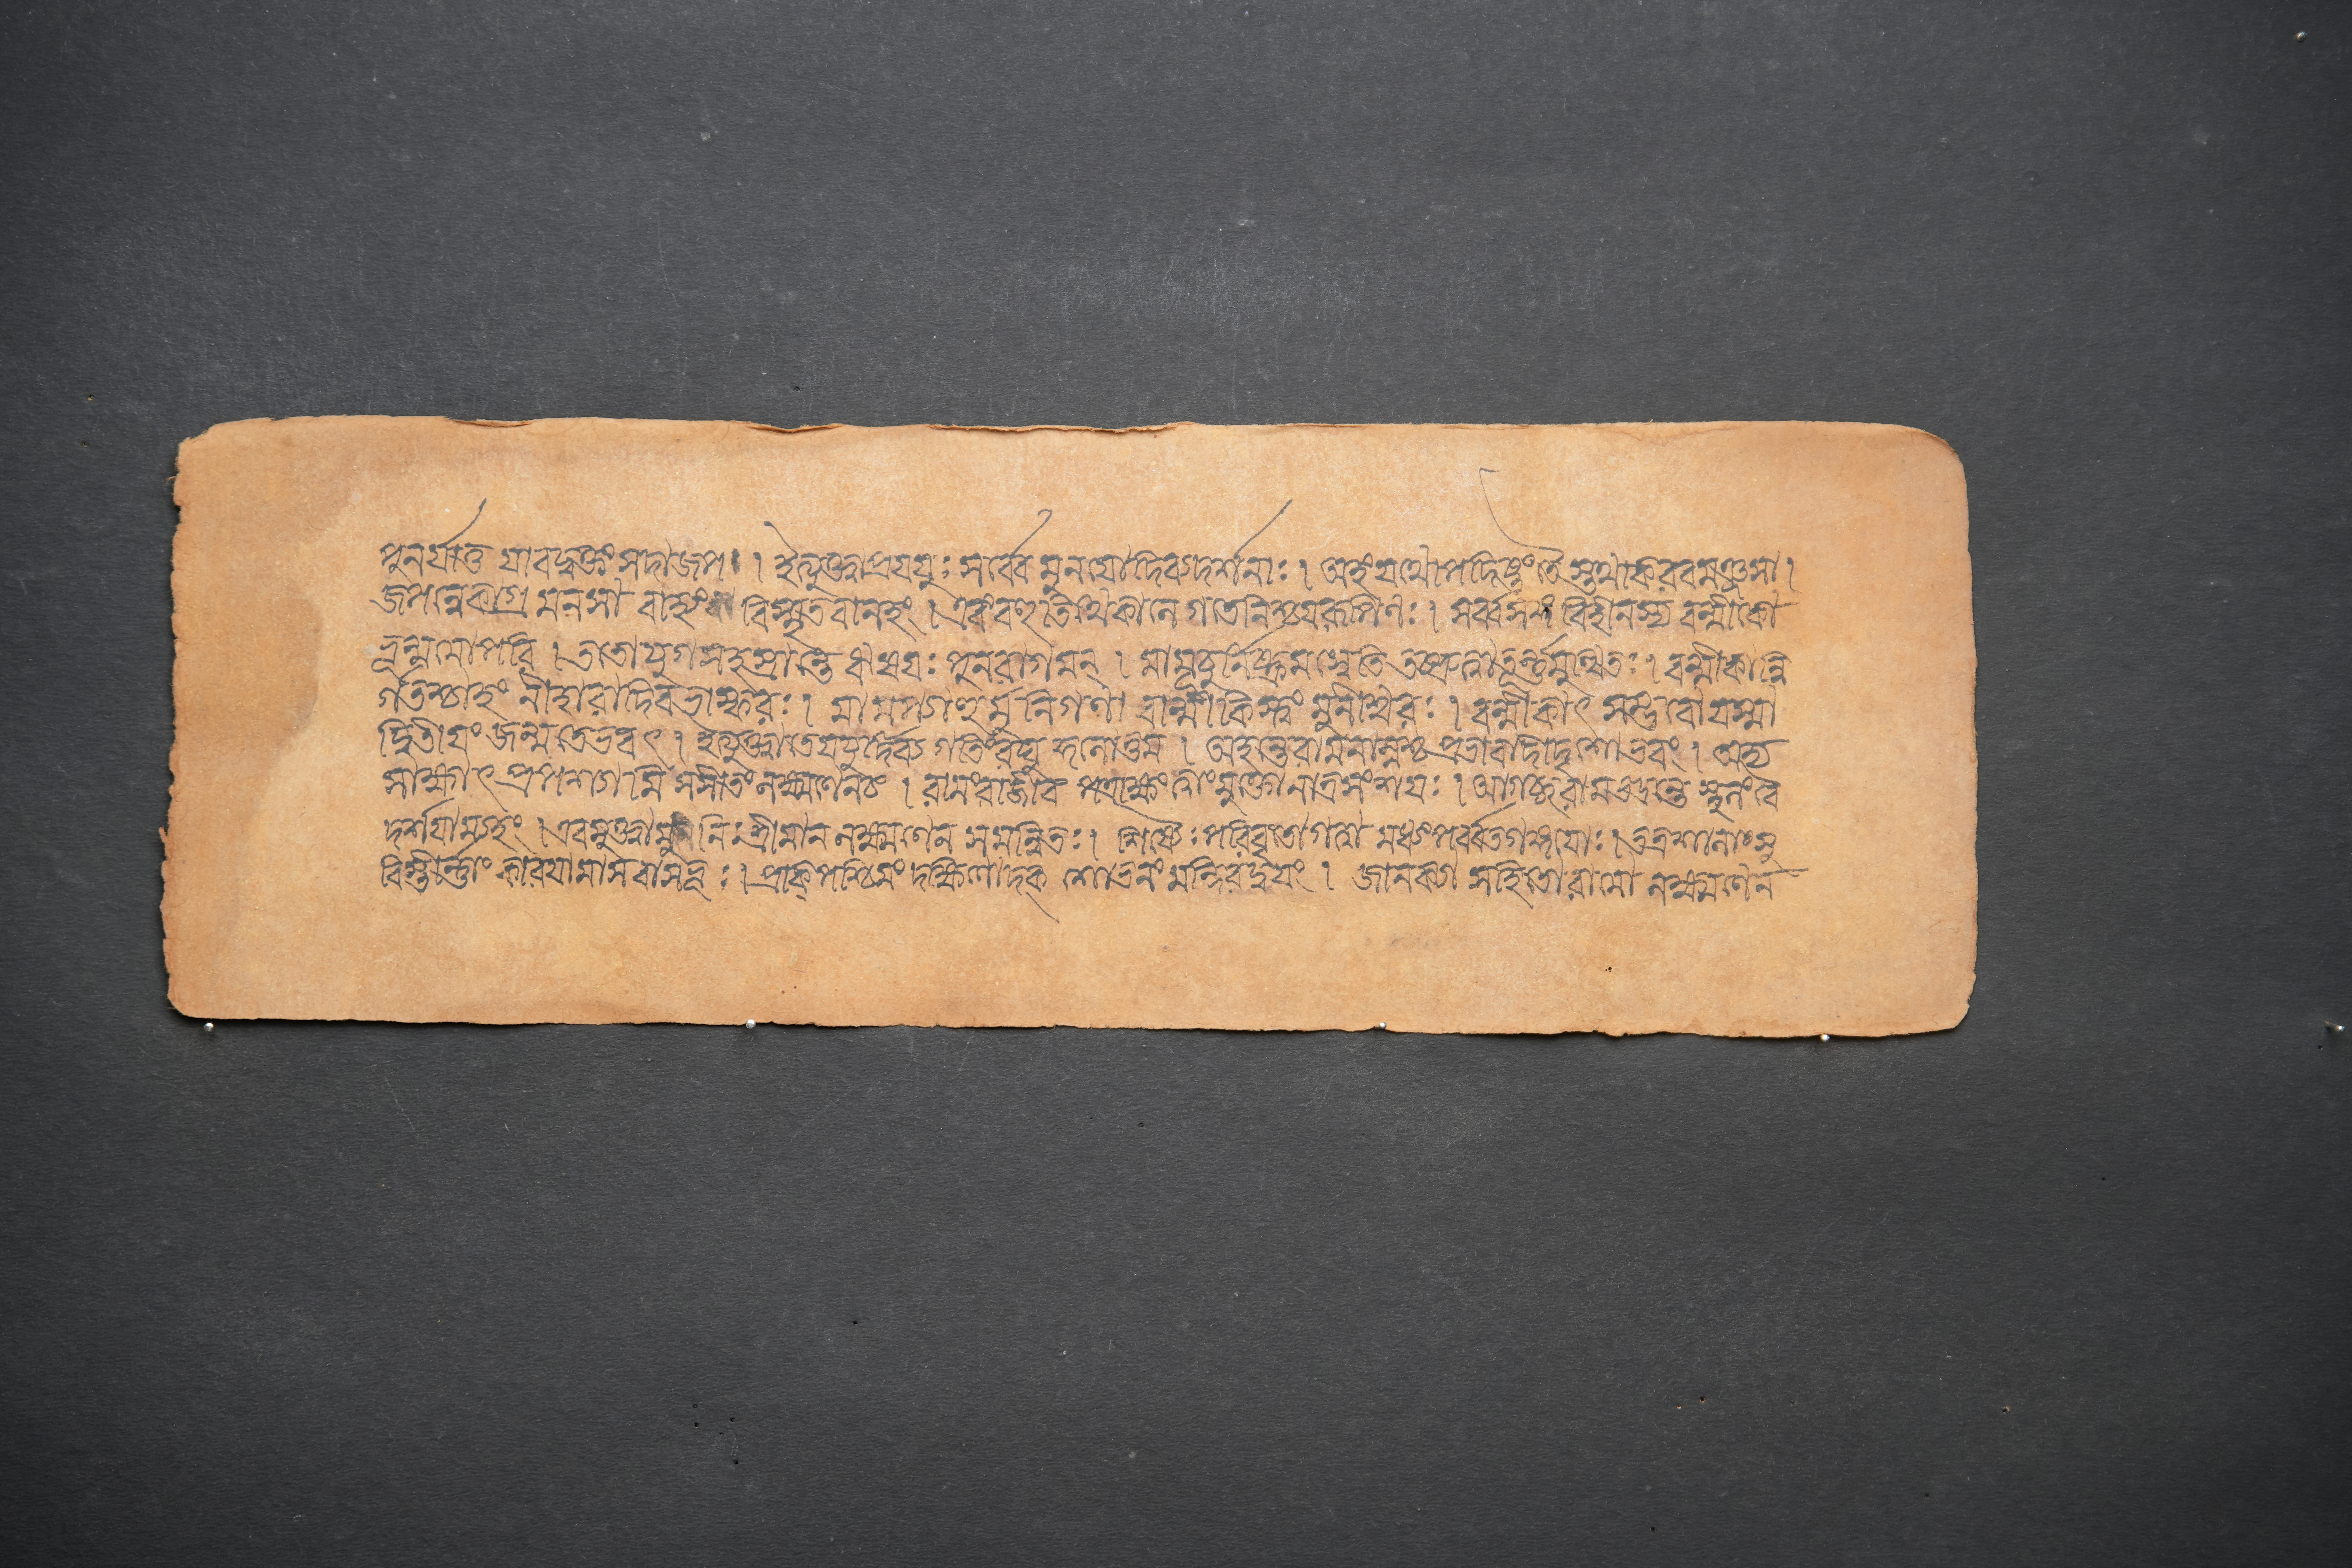 পুনর্যাত্ত যাবদ্দুক্তং সদাজপ। । ইত্যুক্ত্বাপ্রযযুঃ সর্ব্বে মুনযোদিব্যদর্শনাঃ । অহংযথোপদিষ্টংতৈস্তথাকরবমঞ্জসা ।
জপন্নেকাগ্র মনসা বাহ্যং বিস্মৃতবানহং । এবংবহুতিথেকালে গতেনিশ্চযরূপিণঃ । সর্ব্বসঙ্গ বিহীনস্য বল্মীকো
ভূন্মমোপরি । ততোযুগসহস্রান্তে ঋষযঃ পুনরাগমন্ । মামূচুর্নিষ্ক্রমস্বেতি তচ্ছ্রুত্বাতূর্ন্নমুত্থিতঃ । বল্মীকান্নি
র্গতশ্চাহং নীহারাদিবভাস্করঃ । মামপ্যাহুর্মুনিগণা বাল্মীকিস্ত্বং মুনীশ্বরঃ । বল্মীকাৎ সম্ভবোযস্মা
দ্দ্বিতীযং জন্মতেভবৎ । ইত্যুক্ত্বাতেযযুর্দিব্য গতিংরঘু কুলোত্তম । অহন্তেরামনাম্নশ্চ প্রভাবাদীদৃশোভবং । অদ্য
সাক্ষাৎ প্রপশ্যামি সসীতংলক্ষ্মণেনচ । রামংরাজীব পত্রাক্ষং ত্বাংমুক্তোনাত্রসংশযঃ । আগচ্ছরামভদ্রন্তে স্থলংবৈ
দর্শযাম্যহং । এবমুক্ত্বামুনিঃশ্রীমান লক্ষ্মণেন সমন্বিতঃ । শিষ্যৈঃপরিবৃতোগত্বা মধ্যংপর্ব্বতগঙ্গযোঃ । তত্রশালাংসু
বিস্তীর্ন্নাং কারযামাসবাসভূঃ । প্রাক্‌পশ্চিমং দক্ষিণোদক্ শোভনং মন্দিরদ্বযং । জানক্যা সহিতোরামো লক্ষ্মণেন